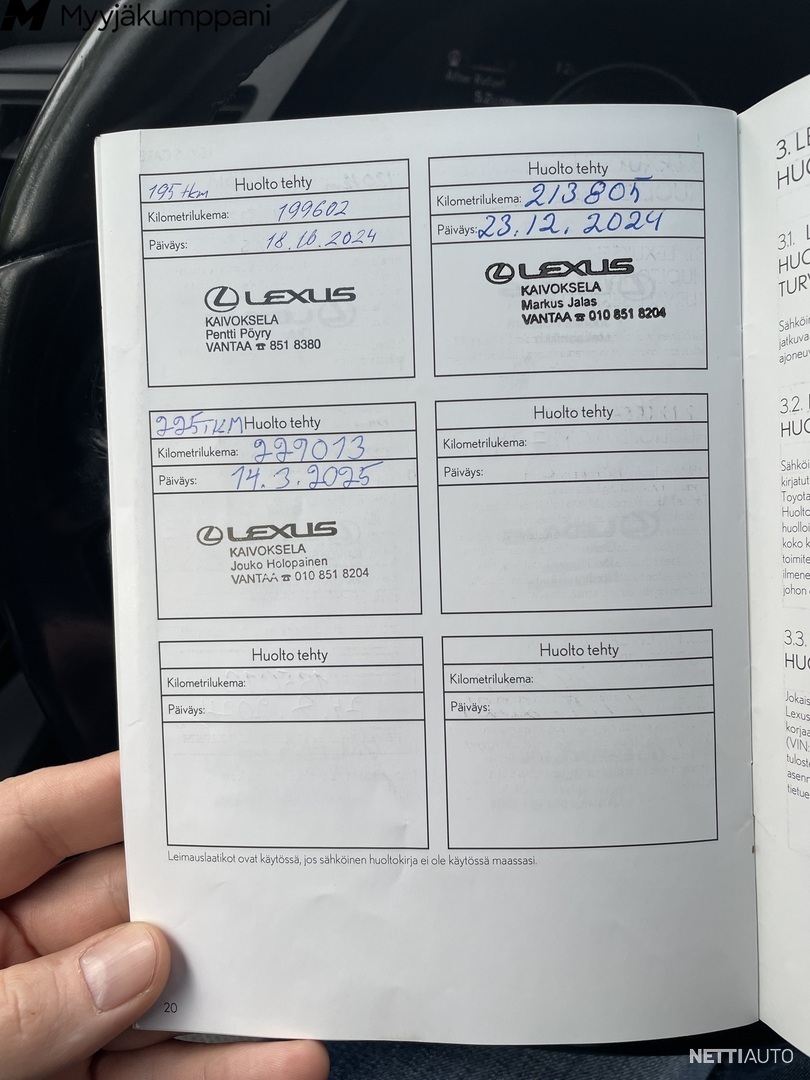 Myyjäkumppani
195 tkm Huolto tehty
Kilometrilukema: 199602
Päiväys: 18.10.2024
LEXUS
KAIVOKSELA
Pentti Pöyry
VANTAA ☎ 851 8380
Huolto tehty
Kilometrilukema: 213805
Päiväys: 23.12.2024
LEXUS
KAIVOKSELA
Markus Jalas
VANTAA ☎ 010 851 8204
225TKM Huolto tehty
Kilometrilukema: 229013
Päiväys: 14.3.2025
LEXUS
KAIVOKSELA
Jouko Holopainen
VANTAA ☎ 010 851 8204
Huolto tehty
Kilometrilukema:
Päiväys:
Huolto tehty
Kilometrilukema:
Päiväys:
Huolto tehty
Kilometrilukema:
Päiväys:
Leimauslaatikot ovat käytössä, jos sähköinen huoltokirja ei ole käytössä maassasi.
20
3. LE
HUO
3.1. L
HUO
TURV
Sähköin
jatkuva
ajoneuv
3.2.
HUO
Sähköi
kirjatut
Toyota
Huolto
huolloi
koko k
toimite
ilmene
johon
3.3.
HUO
Jokais
Lexus
korjaa
(VIN:
tulost
asenn
tietue
NETTIAUTO